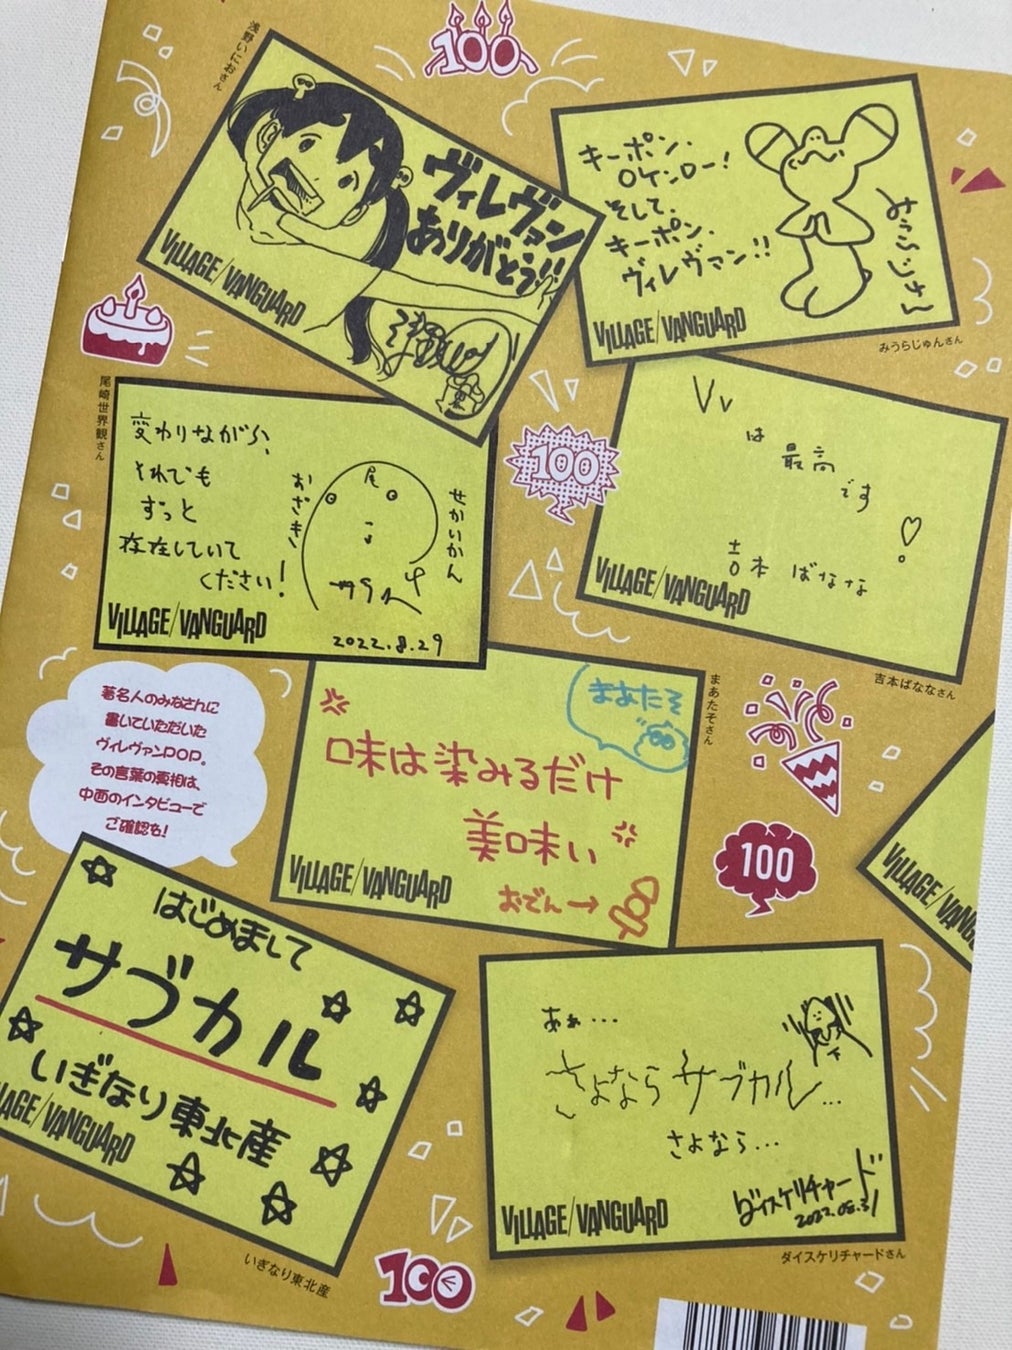 100
浅野いにおさん
ヴィレヴァン
ありがとう!!
VILLAGE/VANGUARD
キーポン、
ロケンロー!
そして、
キーポン、
ヴィレヴァン!!
みうらじゅん
VILLAGE/VANGUARD
みうらじゅんさん
尾崎世界観さん
変わりながら、
それでも
ずっと
存在していて
ください!
おざき
尾
せかいかん
2022.8.29
VILLAGE/VANGUARD
100
Vv
は
最高
です
♡
吉本ばなな
VILLAGE/VANGUARD
吉本ばななさん
著名人のみなさんに
書いていただいた
ヴィレヴァンPOP。
その言葉の真相は、
中面のインタビューで
ご確認を!
まあたそ
味は染みるだけ
美味い
おでん→
VILLAGE/VANGUARD
まあたそさん
100
VILLAGE/VAN
はじめまして
サブカル
いぎなり東北産
LAGE/VANGUARD
いぎなり東北産
あぁ…
さよなら サブカル…
さよなら…
ダイスケリチャード
2022.08.31
VILLAGE/VANGUARD
ダイスケリチャードさん
100